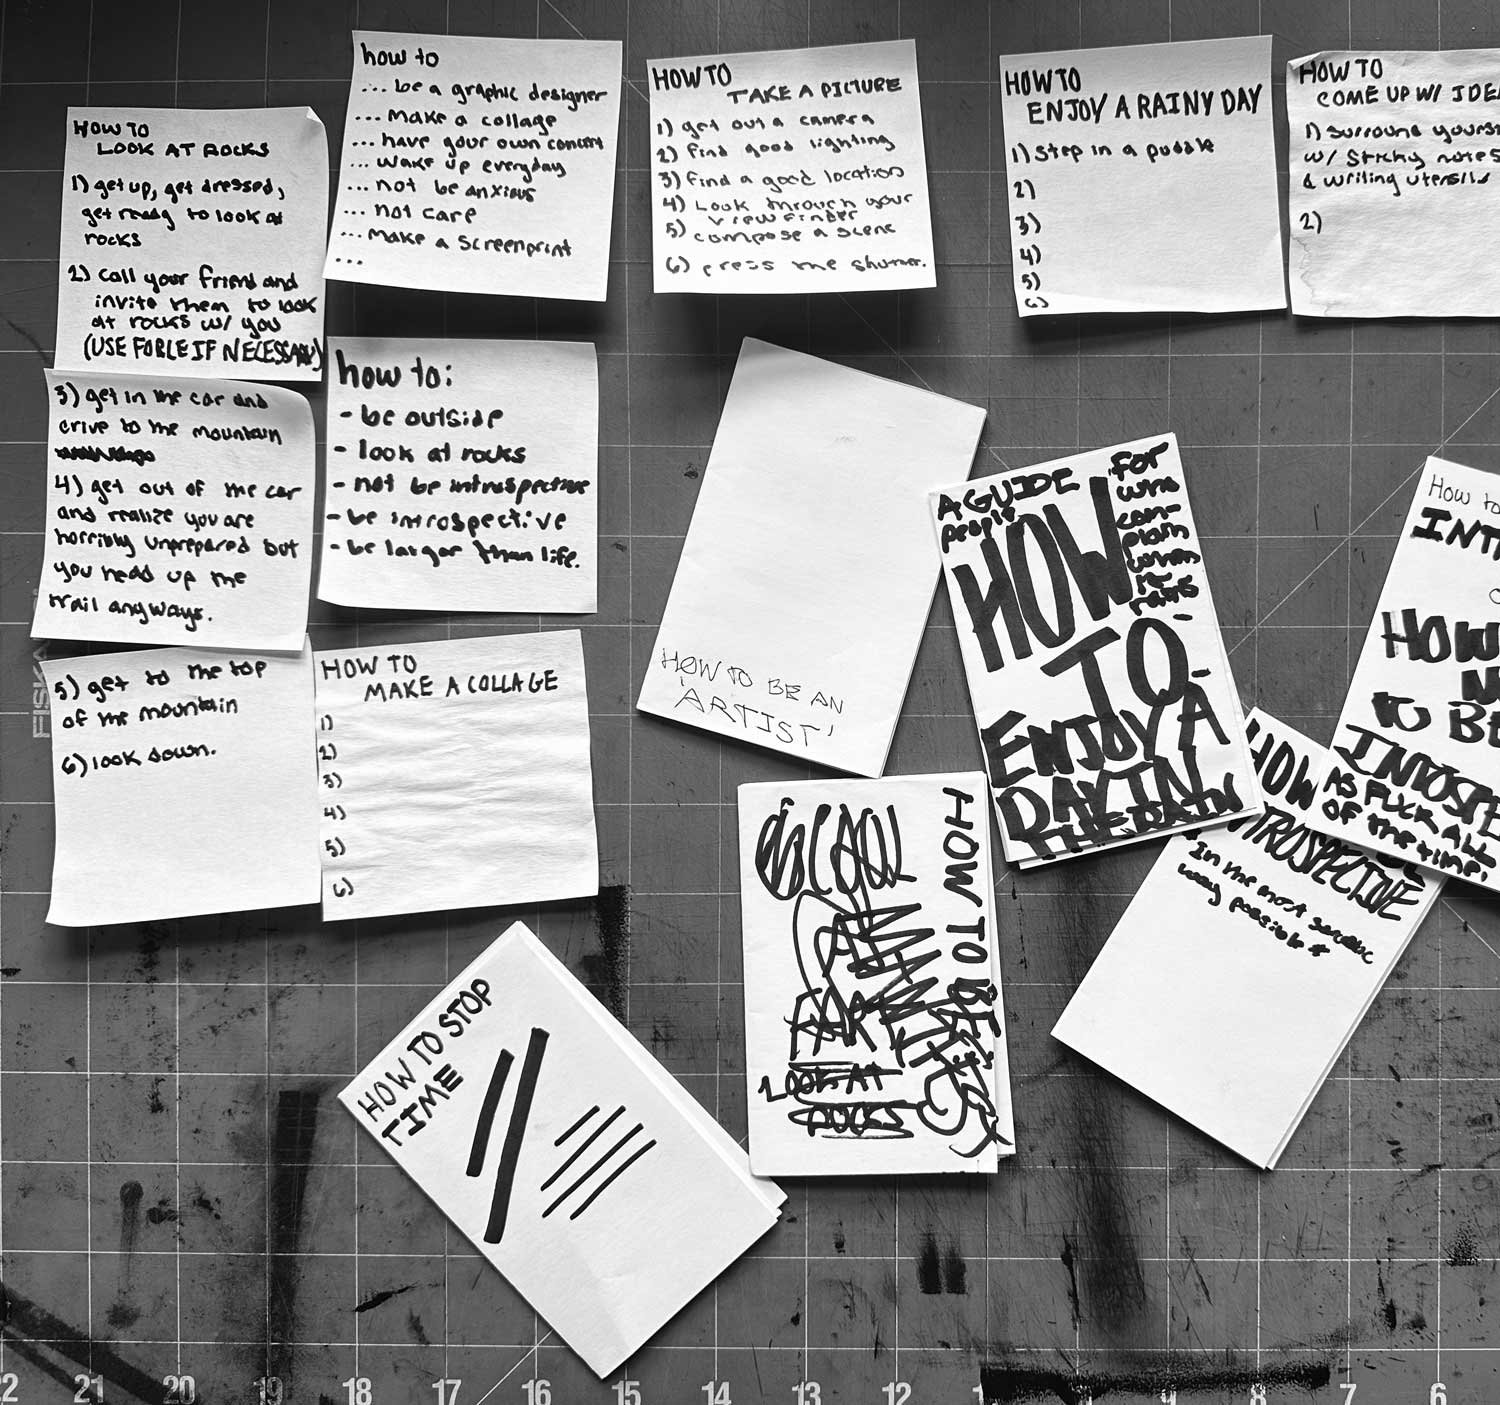 HOW TO
LOOK AT ROCKS
1) get up, get dressed,
get ready to look at
rocks
2) call your friend and
invite them to look
at rocks w/ you
(USE FORCE IF NECESSARY)
3) get in the car and
drive to the mountain
4) get out of the car
and realize you are
horribly unprepared but
you head up the
trail anyways.
5) get to the top
of the mountain
6) look down.
how to
... be a graphic designer
... make a collage
... have your own concert
... wake up everyday
... not be anxious
... not care
... make a screenprint
...
how to:
- be outside
- look at rocks
- not be introspective
- be introspective
- be larger than life.
HOW TO
MAKE A COLLAGE
1)
2)
3)
4)
5)
6)
HOW TO
TAKE A PICTURE
1) get out a camera
2) find good lighting
3) find a good location
4) Look through your
viewfinder
5) compose a scene
6) press the shutter.
HOW TO
ENJOY A RAINY DAY
1) Step in a puddle
2)
3)
4)
5)
6)
HOW TO
COME UP W/ IDEA
1) surround yourse
w/ sticky notes
& writing utensils
2)
HOW TO BE AN
'ARTIST'
A GUIDE
people
FOR
who
com-
plain
when
it
rains
HOW
TO
ENJOY A
DAY IN
THE RAIN
How to
INT
HOW
N
TO BE
INTOSPE
AS FUCK ALL
OF the time!
HOW
INTROSPECTIVE
In the most
way possible *
HOW TO BE
LOOK AT
ROCKS
HOW TO STOP
TIME
FISKA
22 21 20 19 18 17 16 15 14 13 12 9 8 7 6